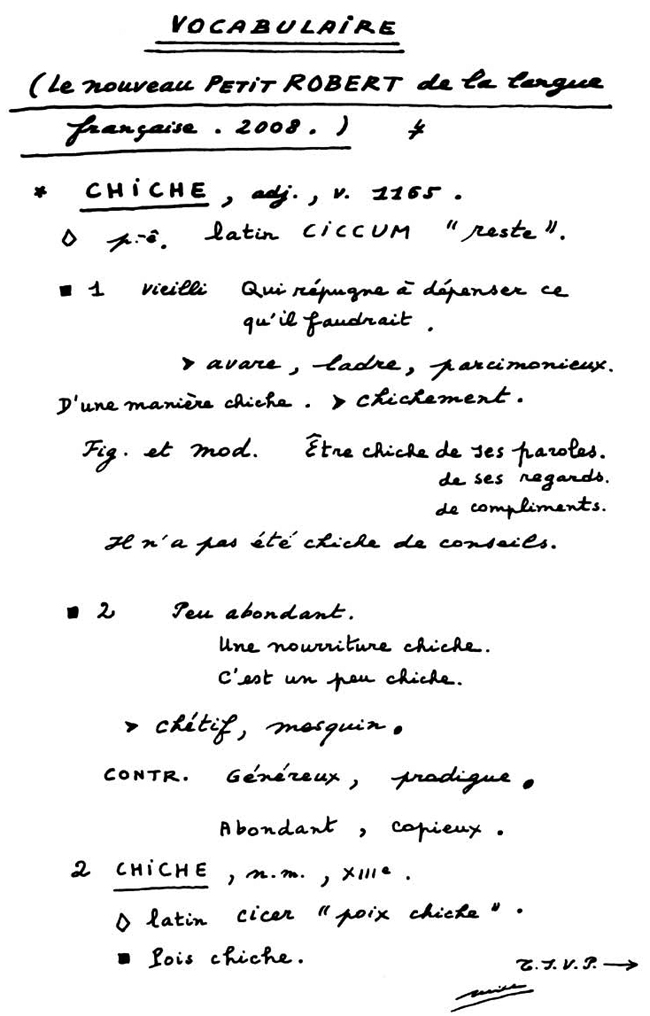 VOCABULAIRE
(Le nouveau PETIT ROBERT de la langue
française . 2008 . )
* CHICHE , adj. , v. 1165 .
◊ p.-ê. latin CICCUM "reste".
▪ 1 vieilli Qui répugne à dépenser ce
qu'il faudrait .
➤ avare , ladre , parcimonieux.
D'une manière chiche . ➤ chichement .
Fig. et mod. Être chiche de ses paroles.
de ses regards.
de compliments.
Il n'a pas été chiche de conseils.
▪ 2 Peu abondant.
Une nourriture chiche.
C'est un peu chiche.
➤ chétif, mesquin.
CONTR. Généreux, prodigue.
Abondant , copieux .
2 CHICHE , n.m. , XIIIe .
◊ latin cicer "poix chiche" .
▪ Pois chiche .
T.S.V.P. →